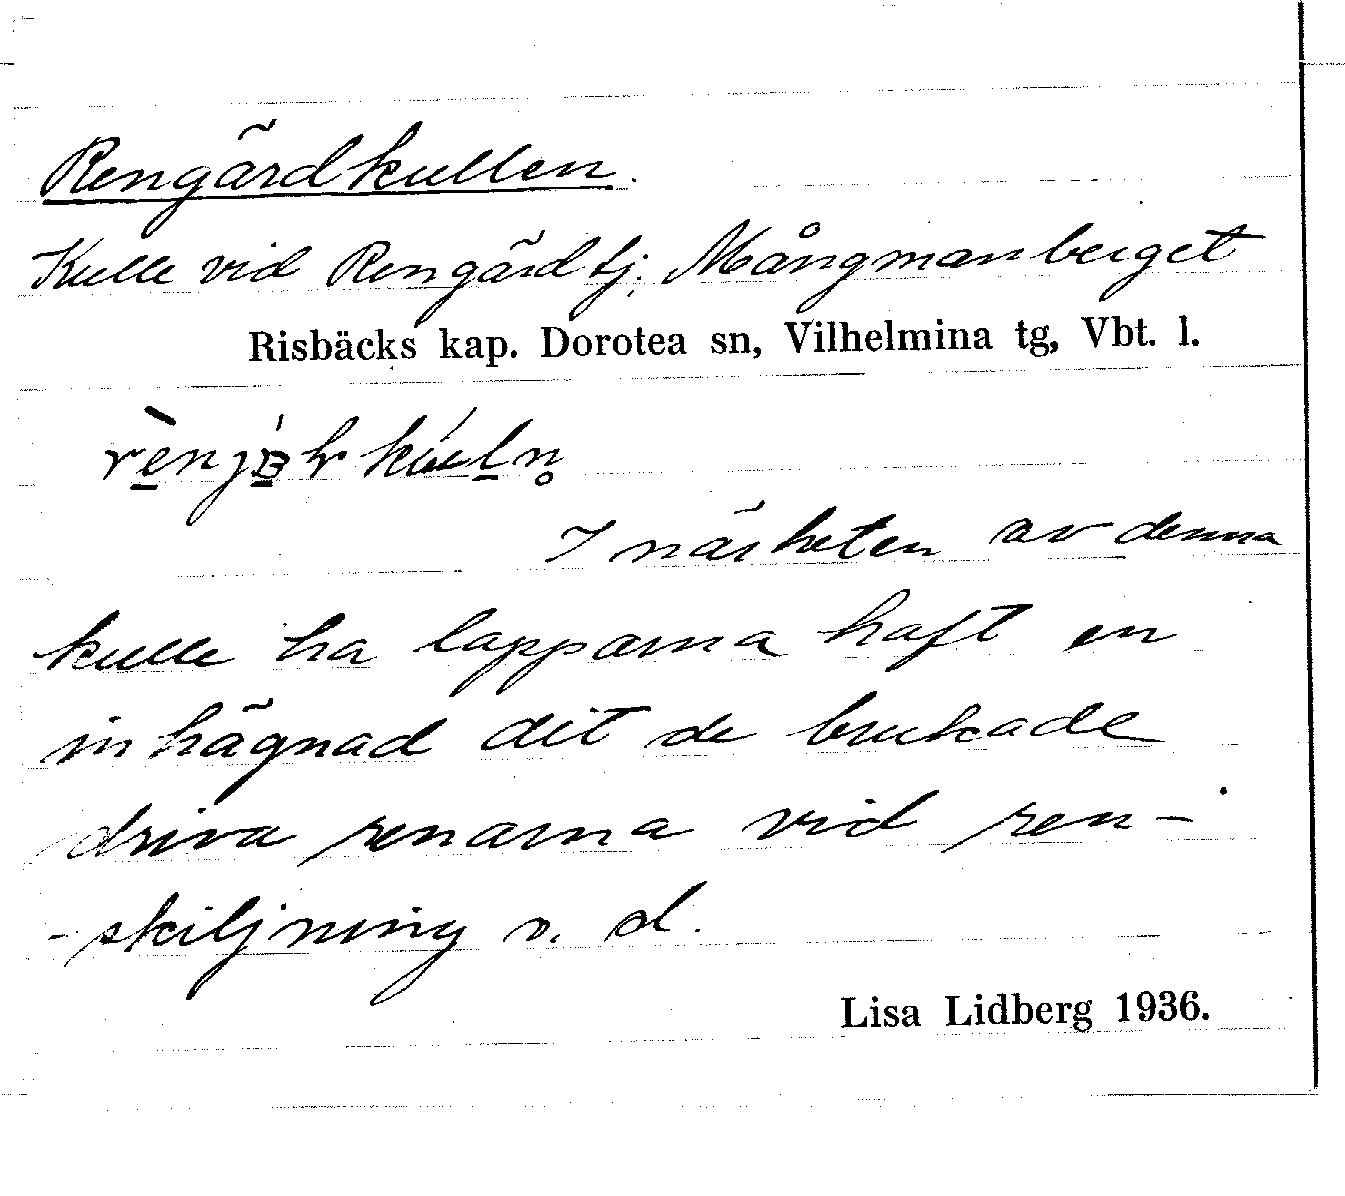 Rengärdkullen.
Kulle vid Rengärdtj. Mångmanberget
Risbäcks kap. Dorotea sn, Vilhelmina tg, Vbt. l.
I närheten av denna
kulle ha lapparna haft en
inhägnad dit de brukade
driva renarna vid ren-
-skiljning o. d.
Lisa Lidberg 1936.